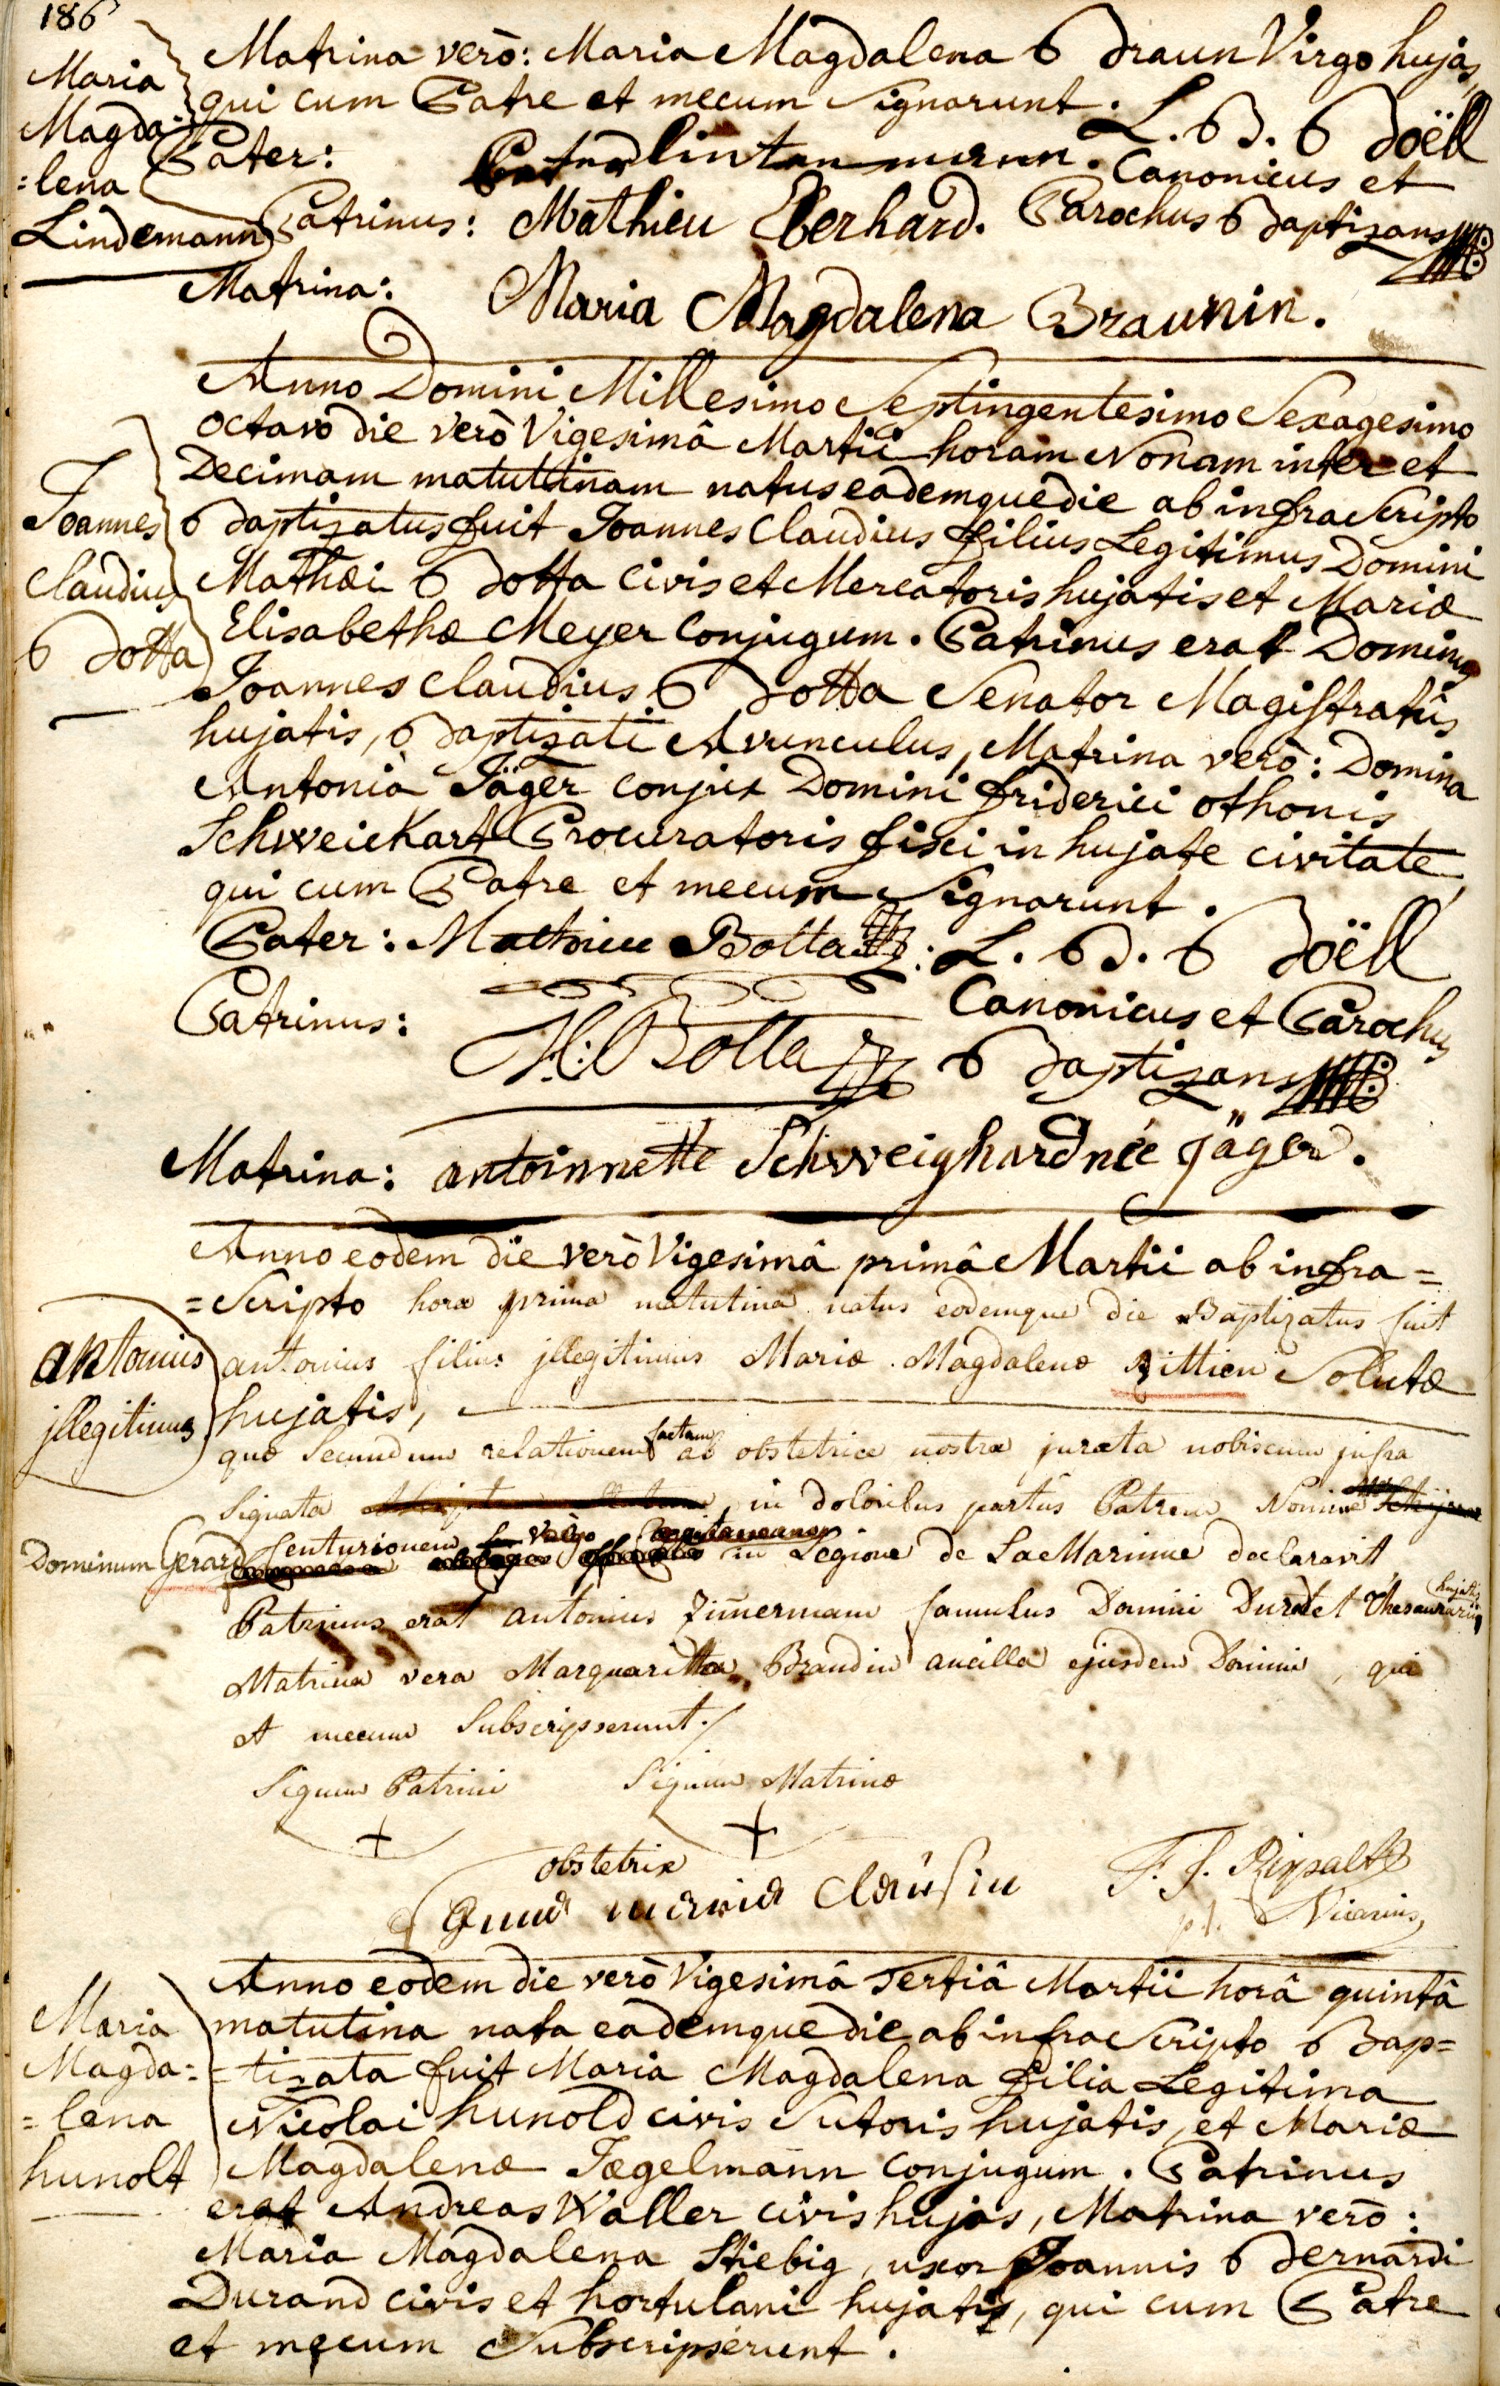 186
Maria
Magda=
=lena
Lindemann
Matrina verò: Maria Magdalena Braun Virgo hujas,
qui cum Patre et mecum Signarunt.
L. B. Boëll
Canonicus et
Parochus Baptizans
Pater:
Patrinus: Mathieu Eberhard.
Matrina: Maria Magdalena Braunin.
Joannes
Claudius
Botta
Anno Domini Millesimo Septingentesimo Sexagesimo
octavo die verò Vigesimâ Martii horam Nonam inter et
Decimam matutinam natus eademque die ab infra Scripto
Baptizatus fuit Joannes Claudius filius Legitimus Domini
Mathæi Botta civis et Mercatoris hujatis et Mariæ
Elisabethæ Meyer Conjugum. Patrinus erat Dominus
Joannes Claudius Botta Senator Magistratûs
hujatis, Baptizati Avunculus, Matrina verò: Domina
Antonia Jäger conjux Domini friderici othonis
Schweickart Procuratoris fisci in hujate civitate,
qui cum Patre et mecum Signarunt.
Pater: Mathieu Botta
L. B. Boëll
Canonicus et Parochus
Baptizans
Patrinus: Botta
Matrina: antoinnette Schweighard née jäger.
antonius
jllegitimus
Anno eodem die verò Vigesimâ primâ Martii ab infra=
=Scripto hora prima matutina natus eodemque die Baptizatus fuit
antonius filius jllegitimus Mariæ Magdalenæ Rittien Solutæ
hujatis,
quæ Secundum relationem factam ab obstetrice nostra jurata nobiscum jnfra
Signata in doloribus partûs Patrem Nomine
Dominum Gerard Centurionem vulgo Capitaneanum in Legione de La Marinne declaravit
Patrinus erat antonius Zim̄erman famulus Domini Durdet Thesaurarii hujatis
Matrina vera Marguaritta Brandin ancilla ejusdem Domini, qui
et mecum Subscripserunt./
Signum Patrini Signum Matrinæ
+ +
obstetrix
Anna maria Clausin
F. J. Ripsalt
p.t. Vicarius
Maria
Magda=
=lena
hunolt
Anno eodem die verò Vigesimâ Tertiâ Martii horâ quintâ
matutina nata eademque die ab infra Scripto Bap=
=tizata fuit Maria Magdalena filia Legitima
Nicolai hunold civis Sutoris hujatis, et Mariæ
Magdalenæ Jægelmann Conjugum. Patrinus
erat Andreas Waller civis hujas, Matrina verò:
Maria Magdalena Stiebig, uxor Joannis Bernardi
Durand civis et hortulani hujatis, qui cum Patre
et mecum Subscripserunt.